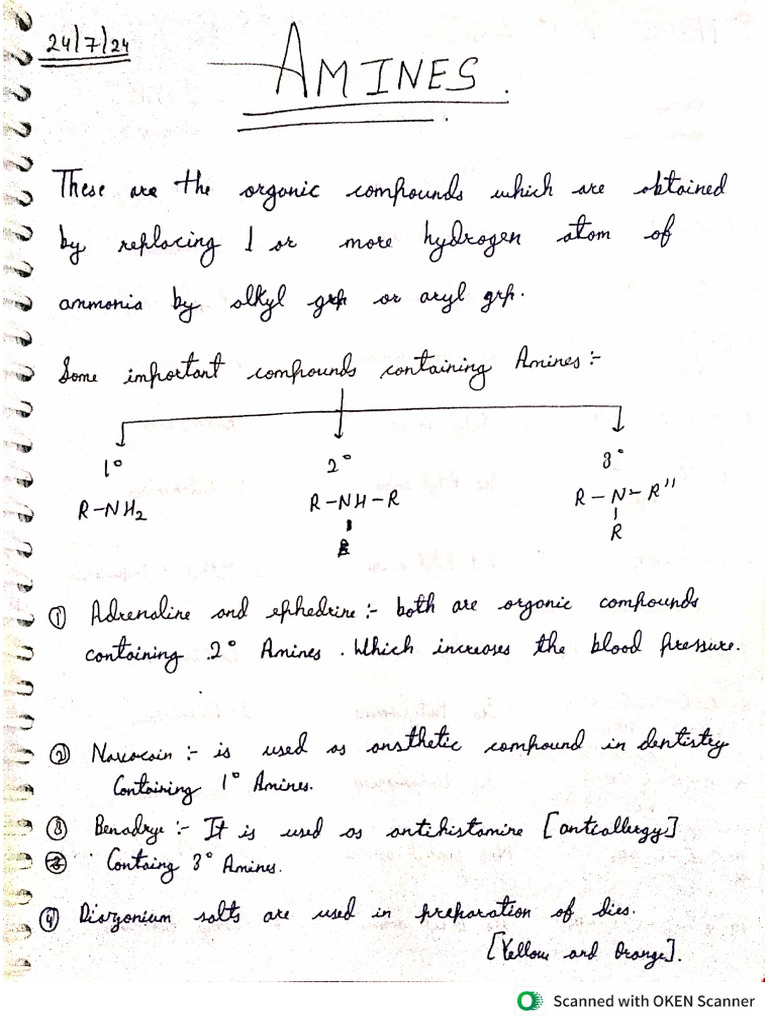 24/7/24
AMINES.
These are the organic compounds which are obtained
by replacing 1 or more hydrogen atom of
ammonia by alkyl grp or aryl grp.
Some important compounds containing Amines :-
1° 2° 3°
R-NH2 R-NH-R R-N-R''
R
① Adrenaline and ephedrine :- both are organic compounds
containing 2° Amines. Which increases the blood pressure.
② Navocain :- is used as ansthetic compound in dentistry
Containing 1° Amines.
③ Benadrye :- It is used as antihistamine [anticallergy]
Containg 3° Amines.
④ Diazonium salts are used in preparation of dies.
[Yellow and Orange].
Scanned with OKEN Scanner